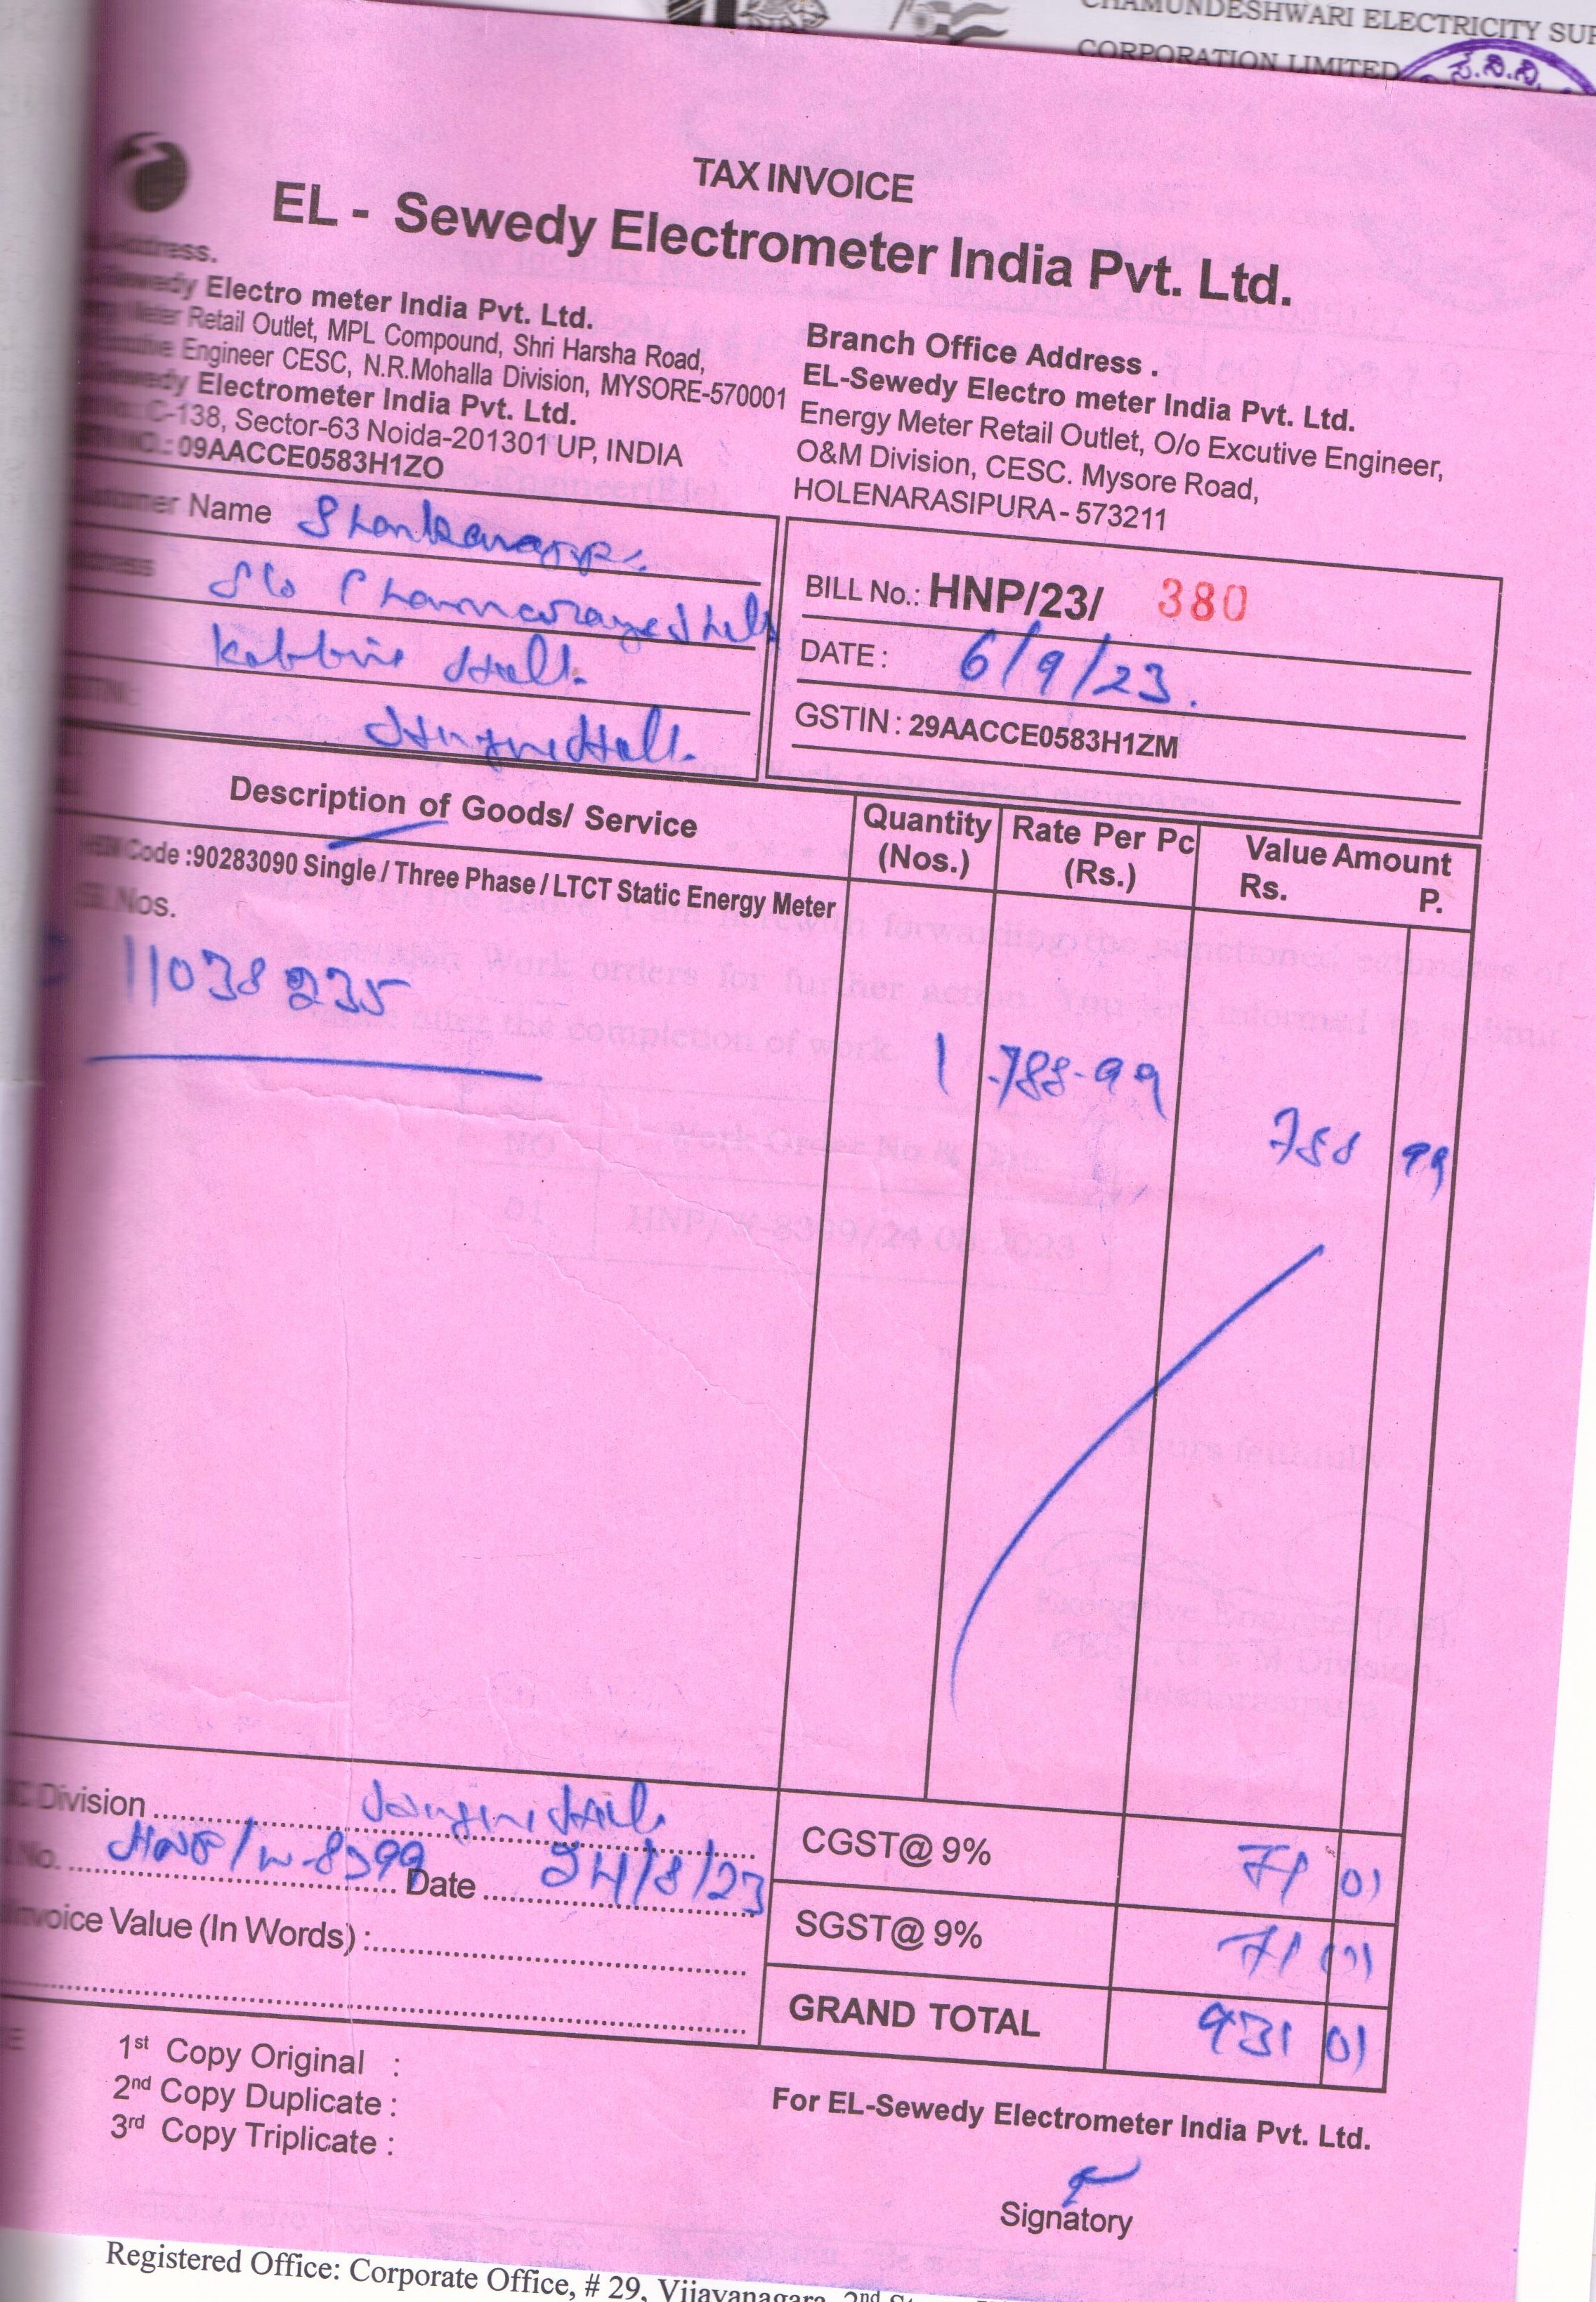 CHAMUNDESHWARI ELECTRICITY SUP
CORPORATION LIMITED
TAX INVOICE
EL - Sewedy Electrometer India Pvt. Ltd.
Address.
Sewedy Electro meter India Pvt. Ltd.
Meter Retail Outlet, MPL Compound, Shri Harsha Road,
Engineer CESC, N.R.Mohalla Division, MYSORE-570001
Sewedy Electrometer India Pvt. Ltd.
C-138, Sector-63 Noida-201301 UP, INDIA
NO.: 09AACCE0583H1ZO
Branch Office Address .
EL-Sewedy Electro meter India Pvt. Ltd.
Energy Meter Retail Outlet, O/o Excutive Engineer,
O&M Division, CESC. Mysore Road,
HOLENARASIPURA - 573211
Customer Name Shankarappa
S/o
BILL No.: HNP/23/ 380
DATE : 6/9/23.
GSTIN : 29AACCE0583H1ZM
Description of Goods/ Service Quantity (Nos.) Rate Per Pc (Rs.) Value Amount Rs. P.
HSN Code :90283090 Single / Three Phase / LTCT Static Energy Meter
Sl. Nos.
11038235
1 788-99
788 99
Division
No. HNP/W-8399 Date 24/8/23
Invoice Value (In Words) :
CGST@ 9% 71 01
SGST@ 9% 71 01
GRAND TOTAL 931 01
1st Copy Original :
2nd Copy Duplicate :
3rd Copy Triplicate :
For EL-Sewedy Electrometer India Pvt. Ltd.
Signatory
Registered Office: Corporate Office, # 29, Vijayanagara, 2nd